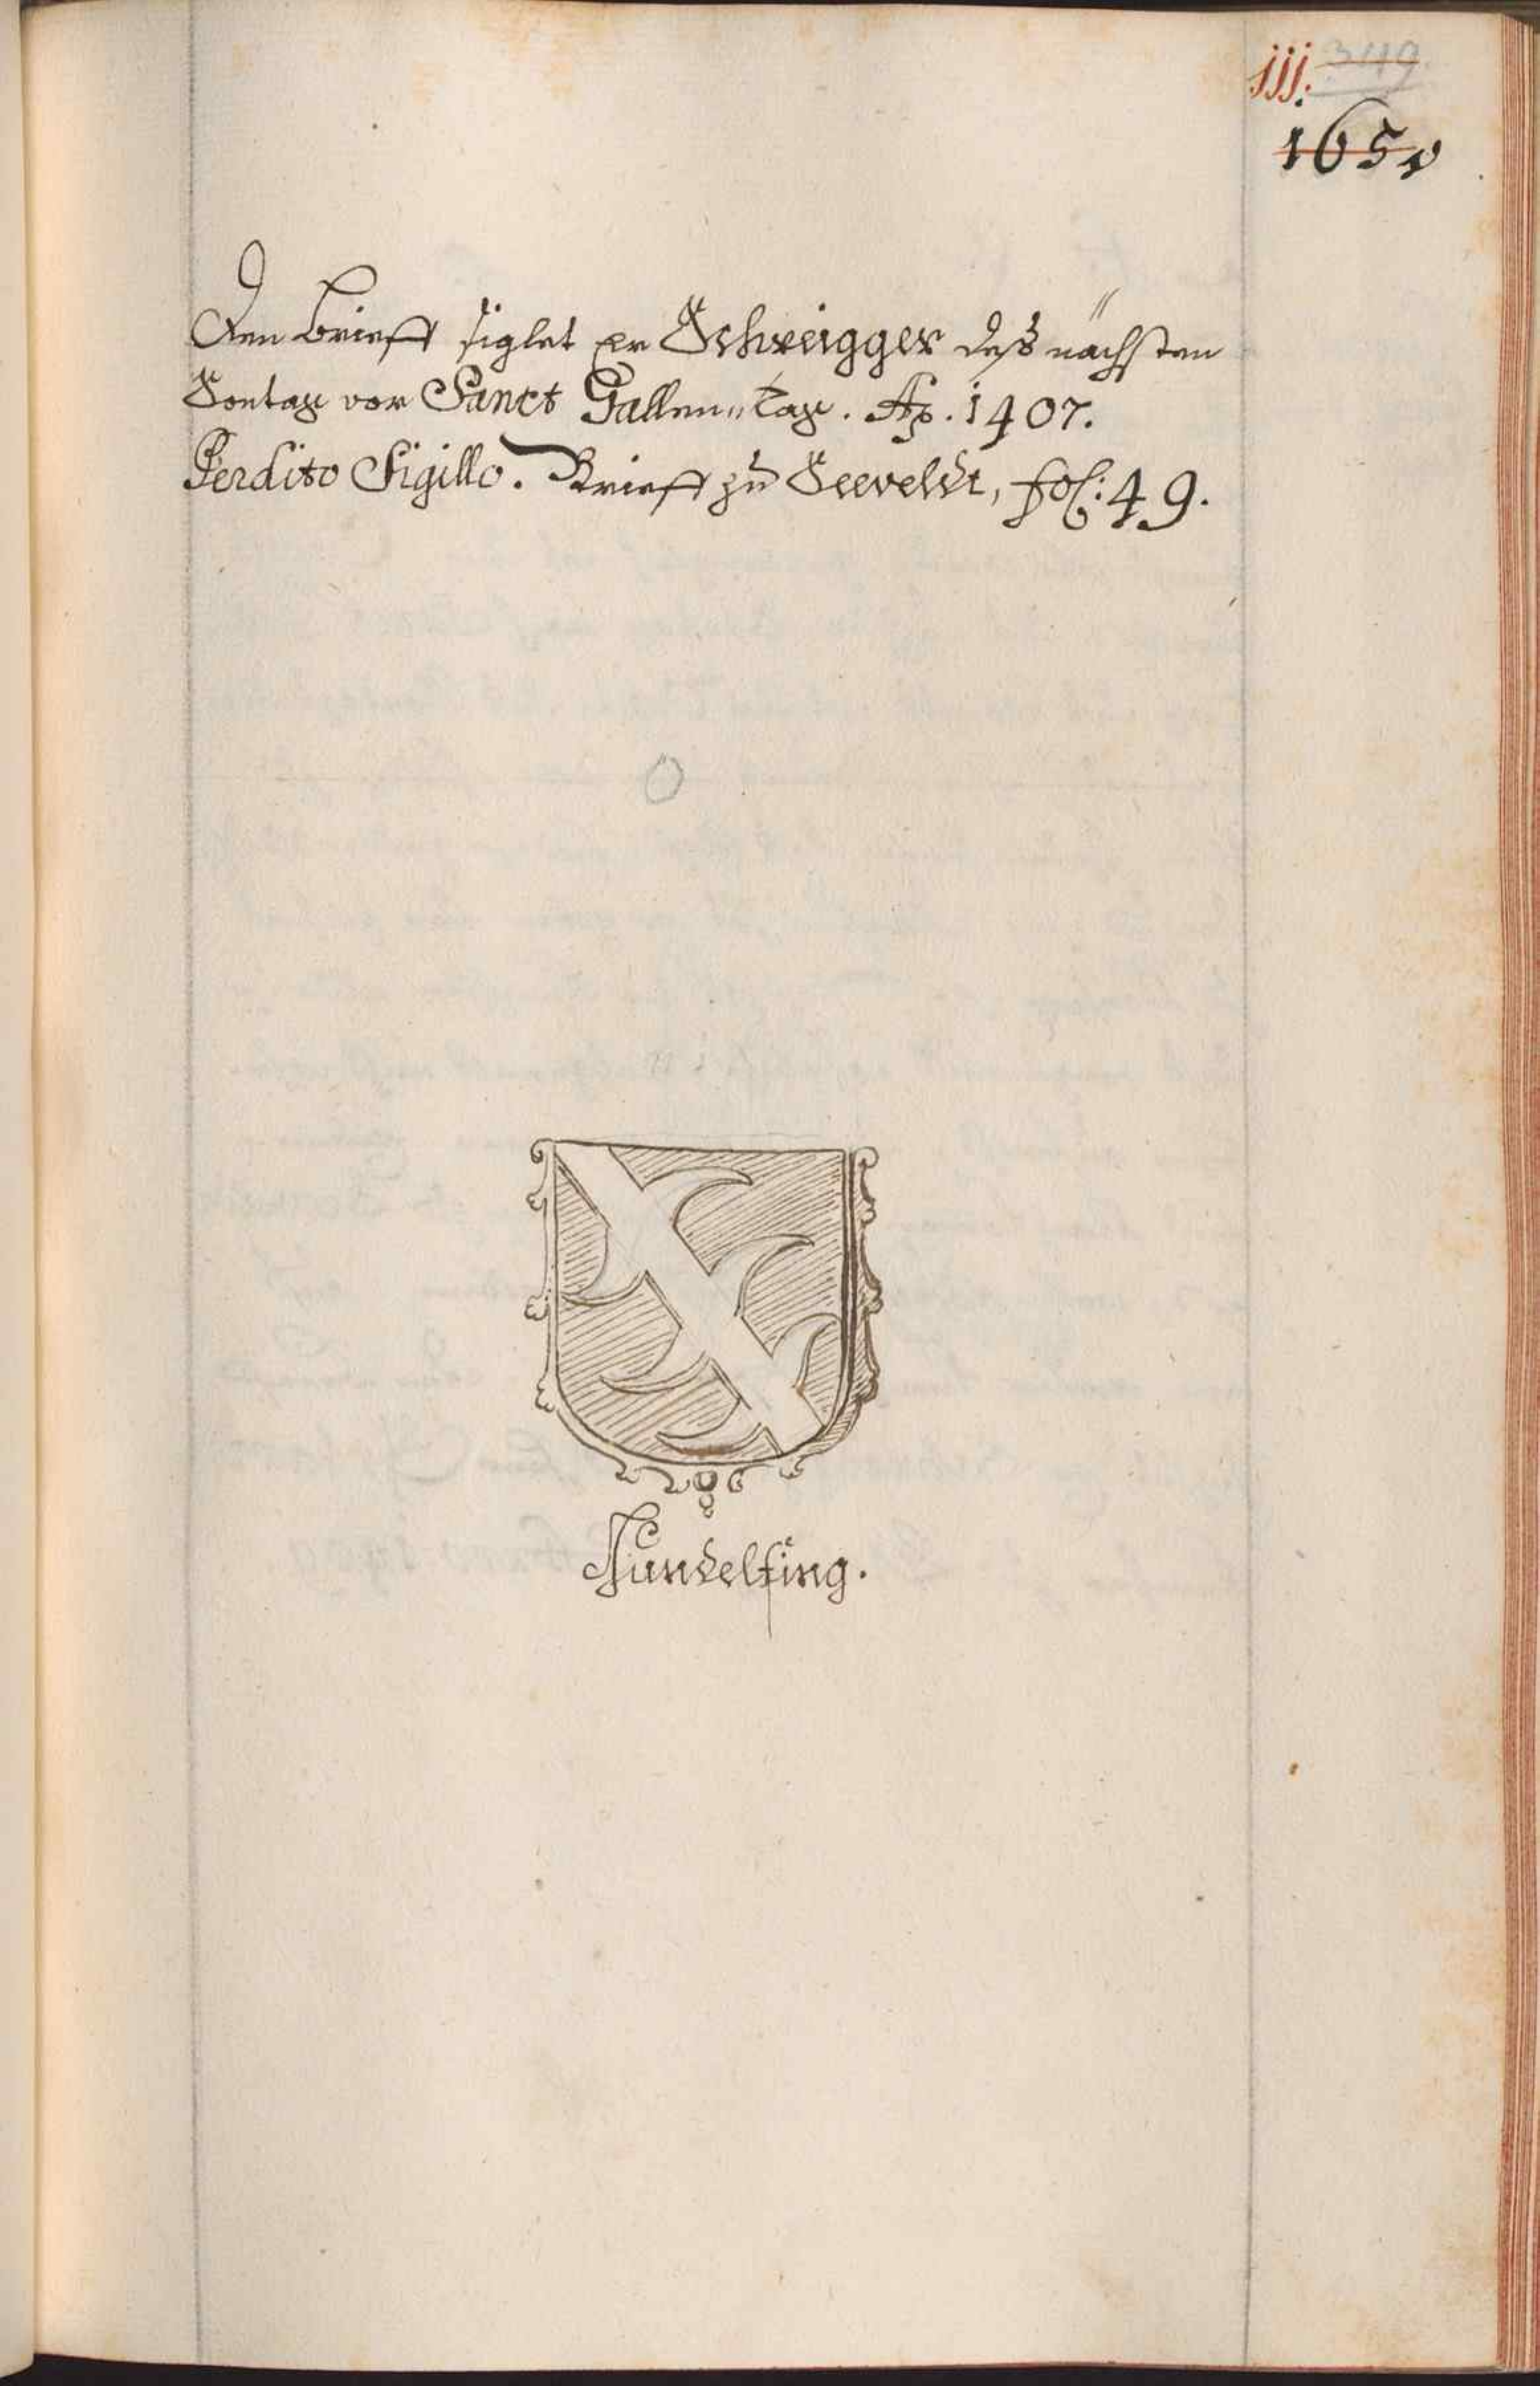 jjj. 349
165v
Den Brieff siglet Er Schweigger deß nächsten
Sontag vor Sanct Gallen„ Tag. Ao. 1407.
Perdito Sigillo. Brieff zu Seeveldt, fol: 49.
Gundelfing.